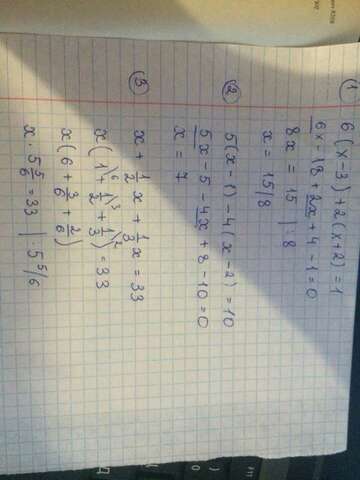 ①
6(x-3)+2(x+2)=1
6x-18+2x+4-1=0
8x = 15 |:8
x = 15/8
②
5(x-1)-4(x-2)=10
5x-5-4x+8-10=0
x = 7
③
x + 1/2 x + 1/3 x = 33
x(1\6 + 1/2\3 + 1/3\2) = 33
x(6 + 3/6 + 2/6)
x · 5 5/6 = 33 | · 5 5/6